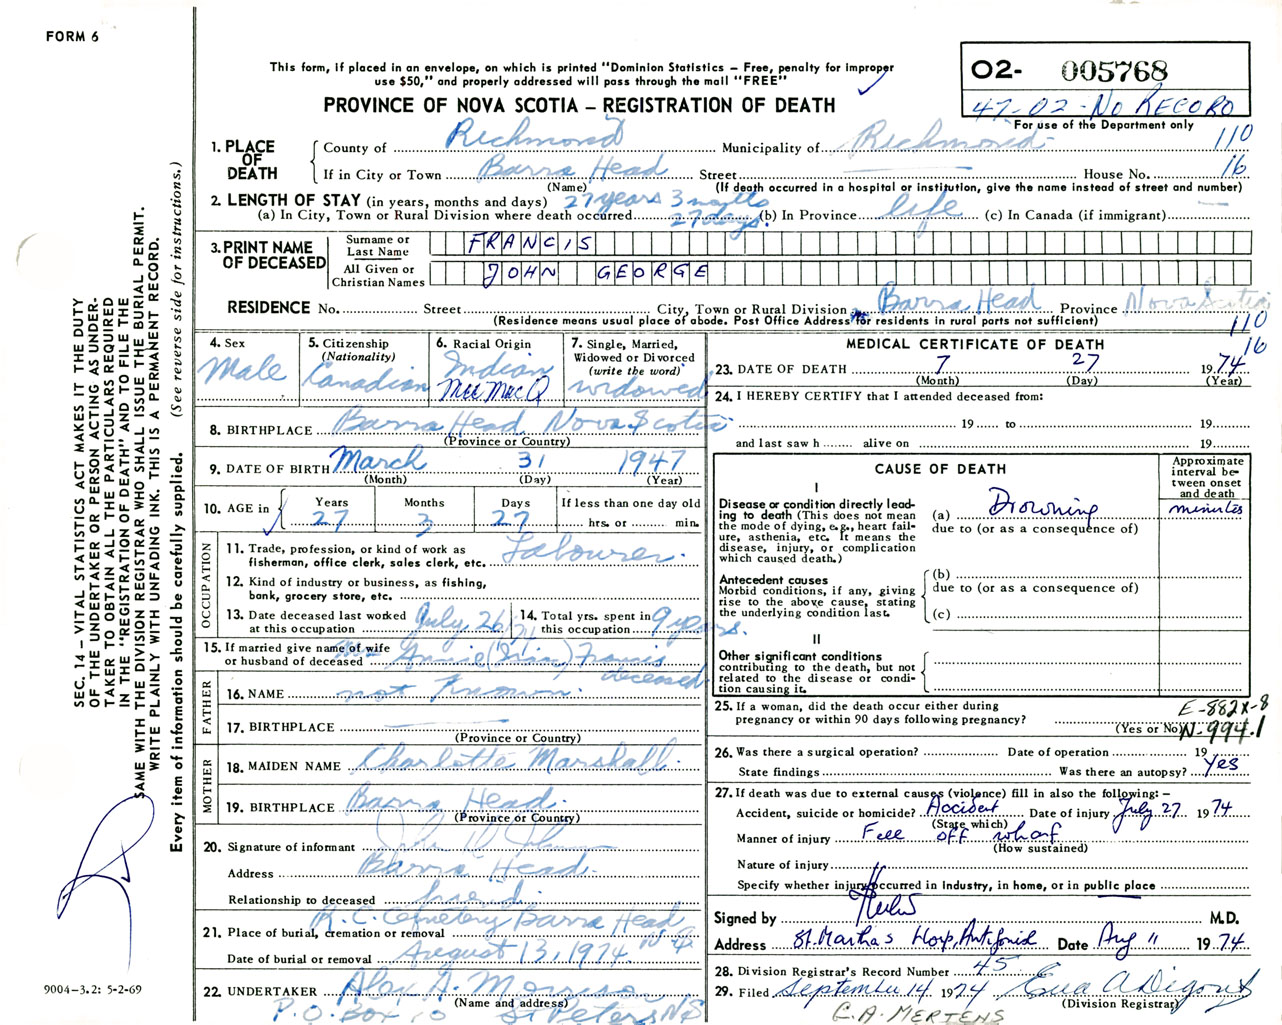 FORM 6
This form, if placed in an envelope, on which is printed "Dominion Statistics – Free, penalty for improper
use $50," and properly addressed will pass through the mail "FREE"
PROVINCE OF NOVA SCOTIA – REGISTRATION OF DEATH
O2- 005768
47-02-No RECORD
For use of the Department only
110
16
1. PLACE OF DEATH
County of Richmond Municipality of Richmond
If in City or Town Barra Head Street — House No.
(Name) (If death occurred in a hospital or institution, give the name instead of street and number)
2. LENGTH OF STAY (in years, months and days) 27 years 3 months
(a) In City, Town or Rural Division where death occurred 27 days. (b) In Province life (c) In Canada (if immigrant) —
3. PRINT NAME OF DECEASED
Surname or Last Name FRANCIS
All Given or Christian Names JOHN GEORGE
RESIDENCE No. Street City, Town or Rural Division Barra Head Province Nova Scotia
(Residence means usual place of abode. Post Office Address for residents in rural parts not sufficient)
110
16
4. Sex Male
5. Citizenship (Nationality) Canadian
6. Racial Origin Indian
7. Single, Married, Widowed or Divorced (write the word) widowed
8. BIRTHPLACE Barra Head Nova Scotia
(Province or Country)
9. DATE OF BIRTH March 31 1947
(Month) (Day) (Year)
10. AGE in Years 27 Months 3 Days 27 If less than one day old hrs. or min.
OCCUPATION
11. Trade, profession, or kind of work as fisherman, office clerk, sales clerk, etc. Labourer.
12. Kind of industry or business, as fishing, bank, grocery store, etc.
13. Date deceased last worked at this occupation July 26/74
14. Total yrs. spent in this occupation 9 years.
15. If married give name of wife or husband of deceased Annie Francis
deceased
FATHER
16. NAME not known.
17. BIRTHPLACE —
(Province or Country)
MOTHER
18. MAIDEN NAME Charlotte Marshall.
19. BIRTHPLACE Barra Head.
(Province or Country)
20. Signature of informant
Address Barra Head.
Relationship to deceased friend.
21. Place of burial, cremation or removal R.C. Cemetery Barra Head
Date of burial or removal August 13, 1974
22. UNDERTAKER Alex A. Morrison
(Name and address)
P.O. Box 10 St Peters N.S
MEDICAL CERTIFICATE OF DEATH
23. DATE OF DEATH 7 27 1974
(Month) (Day) (Year)
24. I HEREBY CERTIFY that I attended deceased from:
19 to 19
and last saw h alive on 19
CAUSE OF DEATH
Approximate interval between onset and death
I
Disease or condition directly leading to death (This does not mean the mode of dying, e.g., heart failure, asthenia, etc. It means the disease, injury, or complication which caused death.)
(a) Drowning minutes
due to (or as a consequence of)
Antecedent causes
Morbid conditions, if any, giving rise to the above cause, stating the underlying condition last.
(b)
due to (or as a consequence of)
(c)
II
Other significant conditions contributing to the death, but not related to the disease or condition causing it.
25. If a woman, did the death occur either during pregnancy or within 90 days following pregnancy?
(Yes or No)
E-882X-8
N-994.1
26. Was there a surgical operation? Date of operation 19
State findings Was there an autopsy? Yes
27. If death was due to external causes (violence) fill in also the following: –
Accident, suicide or homicide? Accident Date of injury July 27 1974
(State which)
Manner of injury Fell off wharf
(How sustained)
Nature of injury
Specify whether injury occurred in Industry, in home, or in public place
Signed by M.D.
Address St. Martha's Hosp, Antigonish Date Aug 11 1974
28. Division Registrar's Record Number 45
29. Filed September 14 1974
(Division Registrar)
C.A. MERTENS
9004–3.2: 5-2-69
SEC. 14 – VITAL STATISTICS ACT MAKES IT THE DUTY
OF THE UNDERTAKER OR PERSON ACTING AS UNDER-
TAKER TO OBTAIN ALL THE PARTICULARS REQUIRED
IN THE "REGISTRATION OF DEATH" AND TO FILE THE
SAME WITH THE DIVISION REGISTRAR WHO SHALL ISSUE THE BURIAL PERMIT.
WRITE PLAINLY WITH UNFADING INK. THIS IS A PERMANENT RECORD.
Every item of information should be carefully supplied. (See reverse side for instructions.)